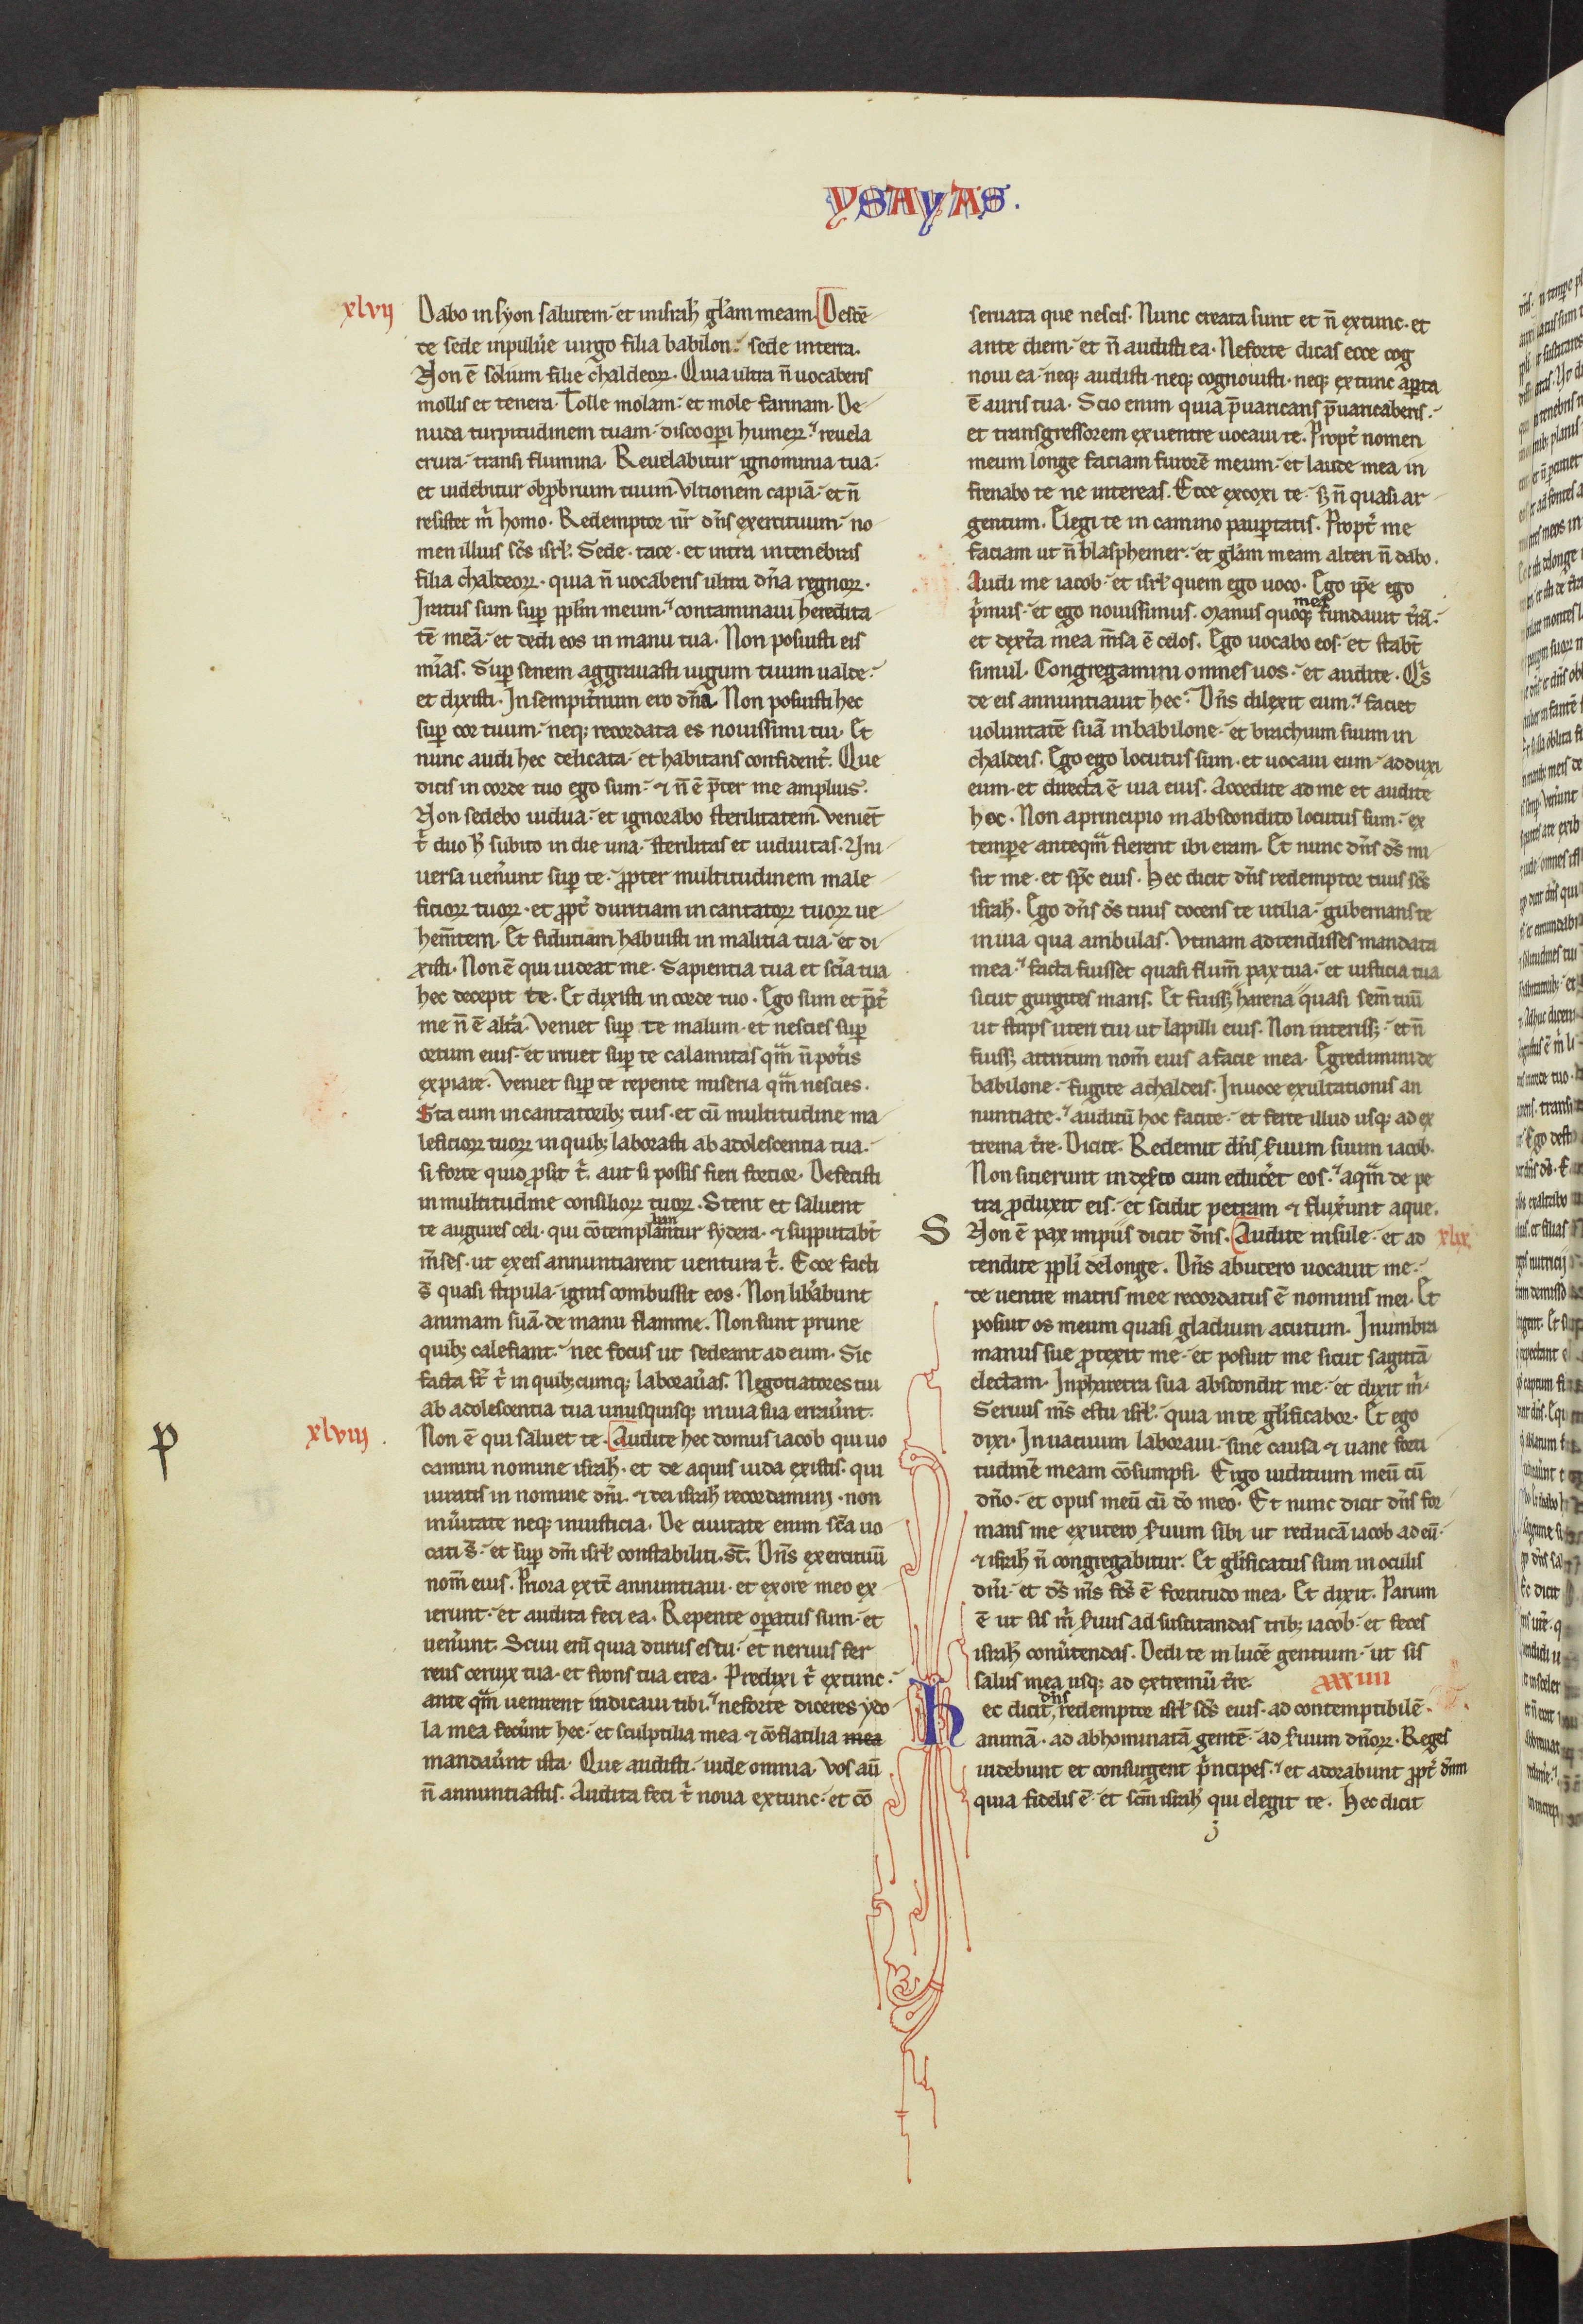 YSAYAS.
xlvij
Dabo in syon salutem et in isrl̄ gl̄am meam. Descē
de sede in puluere uirgo filia babilon. sede in terra.
Non ē solium filie chaldeoꝝ. Quia ultra n̄ uocaberis
mollis et tenera. Tolle molam et mole farinam. De
nuda turpitudinem tuam discoopi humeꝝ. reuela
crura transi flumina. Reuelabitur ignominia tua.
et uidebitur obprobrium tuum. Vltionem capiā et n̄
resistet m̄ homo. Redemptor nr̄ dn̄s exercituum no
men illius sc̄s isrl̄. Sede. tace. et intra in tenebras
filia chaldeoꝝ. quia n̄ uocaberis ultra dn̄a regnoꝝ.
Iratus sum suꝑ ppl̄m meum. contaminaui heredita
tē meā et dedi eos in manu tua. Non posuisti eis
mīas. Suꝑ senem aggrauasti iugum tuum ualde.
et dixisti. In sempit̄num ero dn̄a. Non posuisti hec
suꝑ cor tuum neqꝫ recordata es nouissimi tui. Et
nunc audi hec delicata et habitans confident̄. Que
dicis in corde tuo ego sum ⁊ n̄ ē p̄ter me amplius.
Non sedebo uidua et ignorabo sterilitatem. Veniet̄
t̄ duo h̄ subito in die una sterilitas et uiduitas. Vni
uersa uen̄unt suꝑ te. ꝓpter multitudinem male
ficioꝝ tuoꝝ. et ꝓpt̄ duritiam incantatoꝝ tuoꝝ ue
hem̄tem. Et fidutiam habuisti in malitia tua et di
xisti. Non ē qui uideat me. Sapientia tua et scīa tua
hec decepit te. Et dixisti in corde tuo. Ego sum et p̄t̄
me n̄ ē alt̄a. Veniet suꝑ te malum. et nescies suꝑ
ortum eius et irruet suꝑ te calamitas qm̄ n̄ pot̄is
expiare. Veniet suꝑ te repente miseria qm̄ nescies.
Sta cum incantatoribꝫ tuis. et cū multitudine ma
leficioꝝ tuoꝝ in quibꝫ laborasti ab adolescentia tua.
si forte quid ꝓsit t̄. aut si possis fieri fortior. Defecisti
in multitudine consilioꝝ tuoꝝ. Stent et saluent
te augures celi. qui cōtemplantur sydera. ⁊ supputabt̄
m̄ses. ut ex eis annuntiarent uentura t̄. Ecce facti
s̄ quasi stipula ignis combussit eos. Non lib̄abunt
animam suā de manu flamme. Non sunt prune
quibꝫ calefiant nec focus ut sedeant ad eum. Sic
facta st̄ t̄ in quibꝫcumqꝫ laborau̅as. Negotiatores tui
ab adolescentia tua unusquisqꝫ in uia sua errau̅nt.
p
xlviij.
Non ē qui saluet te. Audite hec domus iacob qui uo
camini nomine isrl̄. et de aquis iuda existis. qui
iuratis in nomine dn̄i. ⁊ dei isrl̄ recordamini. non
in u̅itate neqꝫ in iusticia. De ciuitate enim sc̄a uo
cati s̄. et suꝑ dm̄ isrl̄ constabiliti st̄. Dn̄s exercituū
nom̄ eius. Priora ex tc̄ annuntiaui. et ex ore meo ex
ierunt et audita feci ea. Repente oꝑatus sum et
uen̄unt. Sciui eni̅ quia durus es tu et neruus fer
reus ceruix tua. et frons tua erea. Predixi t̄ extunc.
ante qm̄ uenirent indicaui tibi. ne forte diceres ydo
la mea fec̄unt hec et sculptilia mea ⁊ cōflatilia mea
mandau̅nt ista. Que audisti uide omnia. Vos aū
n̄ annuntiastis. Audita feci t̄ noua extunc et cō
seruata que nescis. Nunc creata sunt et n̄ extunc. et
ante diem et n̄ audisti ea. Ne forte dicas ecce cog
noui ea. neqꝫ audisti neqꝫ cognouisti. neqꝫ extunc aꝑta
ē auris tua. Scio enim quia p̄uaricans p̄uaricaberis.
et transgressorem ex uentre uocaui te. Propt̄ nomen
meum longe faciam furorē meum et laude mea in
frenabo te ne intereas. Ecce excoxi te. sꝫ n̄ quasi ar
gentum. Elegi te in camino pauꝑtatis. Propt̄ me
faciam ut n̄ blasphemer. et gl̄am meam alteri n̄ dabo.
Audi me iacob et isrl̄ quem ego uoco. Ego ip̄e ego
p̄mus et ego nouissimus. Manus quoqꝫ mea fundauit t̄rā.
et dext̄a mea m̄sa ē celos. Ego uocabo eos et stabt̄
simul. Congregamini omnes uos et audite. Qis
de eis annuntiauit hec. Dn̄s dilexit eum. faciet
uoluntatē suā in babilone et brachium suum in
chaldeis. Ego ego locutus sum. et uocaui eum adduxi
eum et directa ē uia eius. Accedite ad me et audite
hoc. Non a principio in abscondito locutus sum. ex
temꝑe anteqm̄ fierent ibi eram. Et nunc dn̄s ds̄ mi
sit me. et sp̄c eius. Hec dicit dn̄s redemptor tuus sc̄s
isrl̄. Ego dn̄s ds̄ tuus docens te utilia. gubernans te
in uia qua ambulas. Vtinam adtendisses mandata
mea. facta fuisset quasi flum̄ pax tua et iusticia tua
sicut gurgites maris. Et fuissꝫ harena quasi sem̄ tuū
ut stirps uteri tui ut lapilli eius. Non interissꝫ et n̄
fuissꝫ attritum nom̄ eius a facie mea. Egredimini de
babilone fugite a chaldeis. In uoce exultationis an
nuntiate. auditū hoc facite et ferte illud usqꝫ ad ex
trema t̄re. Dicite. Redemit dn̄s s̄uum suum iacob.
Non sitierunt in des̄to cum educet̄ eos. aqm̄ de pe
tra ꝓduxit eis et scidit petram ⁊ flux̄unt aque.
S
Non ē pax impiis dicit dn̄s. Audite insule et ad
xlix.
tendite ppl̄i de longe. Dn̄s ab utero uocauit me.
de uentre matris mee recordatus ē nominis mei. Et
posuit os meum quasi gladium acutum. In umbra
manus sue ꝓtexit me et posuit me sicut sagittā
electam. In pharetra sua abscondit me et dixit m̄.
Seruus ms̄ es tu isrl̄. quia in te gl̄ificabor. Et ego
dixi. In uacuum laboraui. sine causa ⁊ uane forti
tudinē meam cōsumpsi. Ergo iuditium meū cū
dn̄o et opus meū cū dō meo. Et nunc dicit dn̄s for
mans me ex utero s̄uum sibi ut reducā iacob ad eū.
⁊ isrl̄ n̄ congregabitur. Et gl̄ificatus sum in oculis
dn̄i et ds̄ ms̄ fcs̄ ē fortitudo mea. Et dixit. Parum
ē ut sis m̄ s̄uus ad suscitandas tribꝫ iacob et feces
isrl̄ conu̅tendas. Dedi te in lucē gentium ut sis
salus mea usqꝫ ad extremū t̄re.
Hec dicit dn̄s redemptor isrl̄ sc̄s eius. ad contemptibilē
animā. ad abhominatā gentē ad s̄uum dn̄oꝝ. Reges
uidebunt et consurgent p̄ncipes. et adorabunt ꝓpt̄ dn̄m
quia fidelis ē et scm̄ isrl̄ qui elegit te. Hec dicit